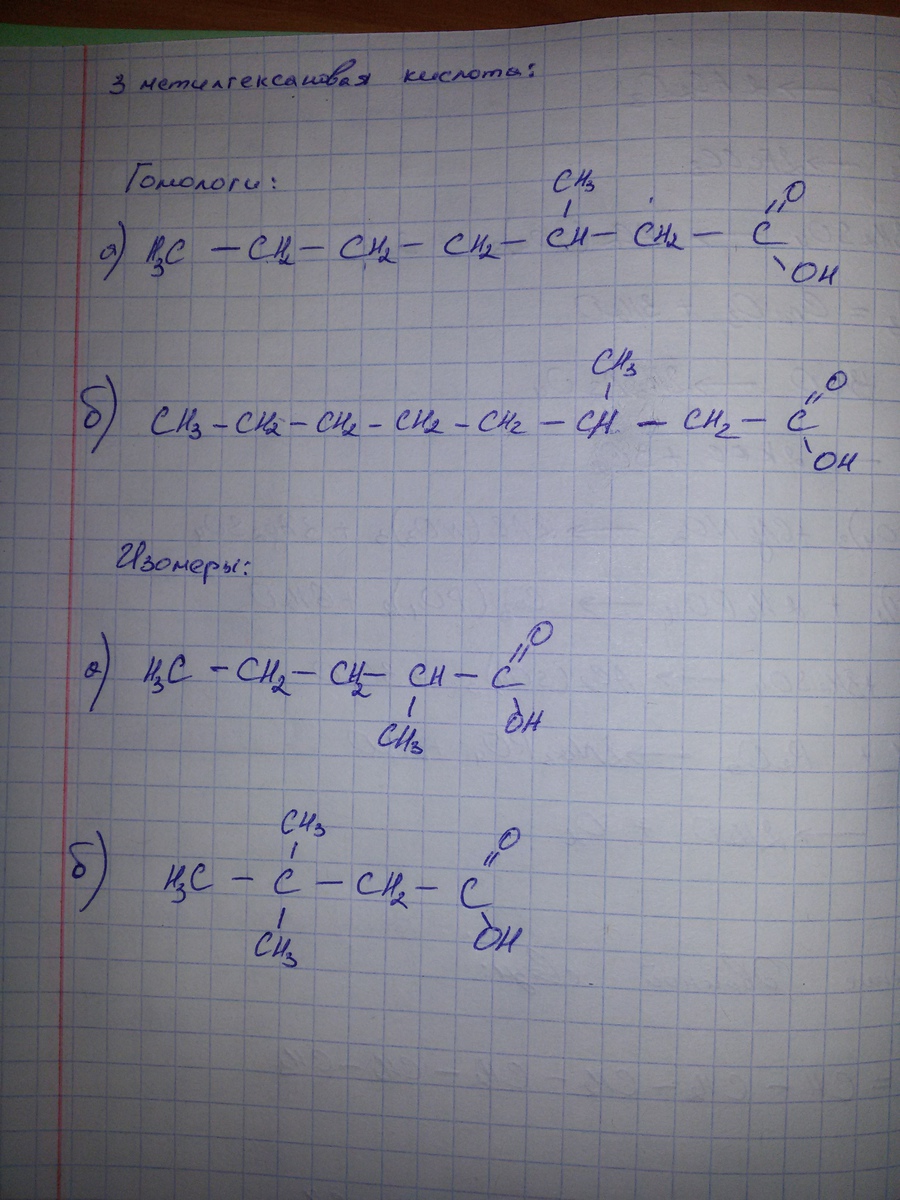 3 метилгексановая кислота:
Гомологи:
CH₃
а) H₃C — CH₂ — CH₂ — CH₂ — CH — CH₂ — C
O
OH
CH₃
б) CH₃ — CH₂ — CH₂ — CH₂ — CH₂ — CH — CH₂ — C
O
OH
Изомеры:
а) H₃C — CH₂ — CH₂ — CH — C
O
CH₃
OH
CH₃
б) H₃C — C — CH₂ — C
O
CH₃
OH